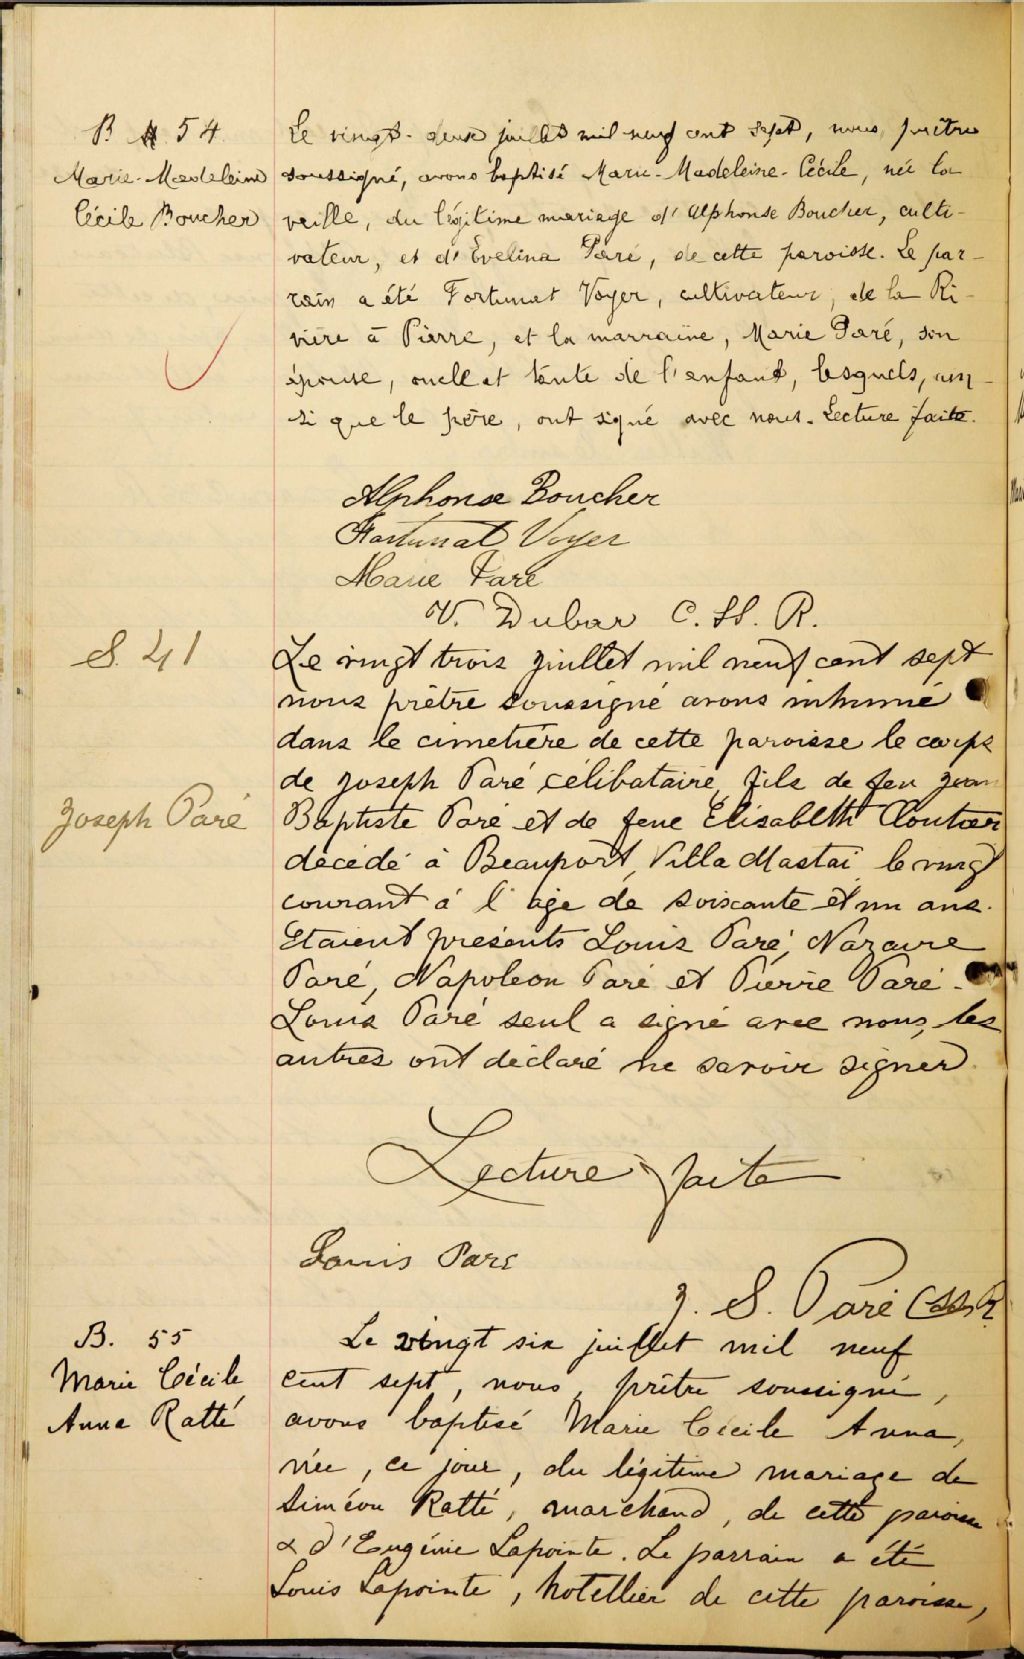 B 54
Marie-Madeleine
Cécile Boucher
Le vingt-deux juillet mil neuf cent sept, nous, prêtre
soussigné, avons baptisé Marie-Madeleine-Cécile, née la
veille, du légitime mariage d'Alphonse Boucher, culti-
vateur, et d'Evelina Paré, de cette paroisse. Le par-
rain a été Fortunat Voyer, cultivateur, de la Ri-
vière à Pierre, et la marraine, Marie Paré, son
épouse, oncle et tante de l'enfant, lesquels, ain-
si que le père, ont signé avec nous. Lecture faite.
Alphonse Boucher
Fortunat Voyer
Marie Paré
V. Dubar C. SS. R.
S. 41
Joseph Paré
Le vingt trois juillet mil neuf cent sept
nous prêtre soussigné avons inhumé
dans le cimetière de cette paroisse le corps
de Joseph Paré célibataire, fils de feu Jean
Baptiste Paré et de feue Elisabeth Cloutier
décédé à Beauport, Villa Mastaï le vingt
courant à l'age de soixante et un ans.
Etaient présents Louis Paré, Nazaire
Paré, Napoleon Paré et Pierre Paré.
Louis Paré seul a signé avec nous, les
autres ont déclaré ne savoir signer.
Lecture faite
Louis Paré
J. S. Paré CSSR
B. 55
Marie Cécile
Anna Ratté
Le vingt six juillet mil neuf
cent sept, nous, prêtre soussigné,
avons baptisé Marie Cécile Anna,
née, ce jour, du légitime mariage de
Siméon Ratté, marchand, de cette paroisse
& d'Eugénie Lapointe. Le parrain a été
Louis Lapointe, hotellier de cette paroisse,